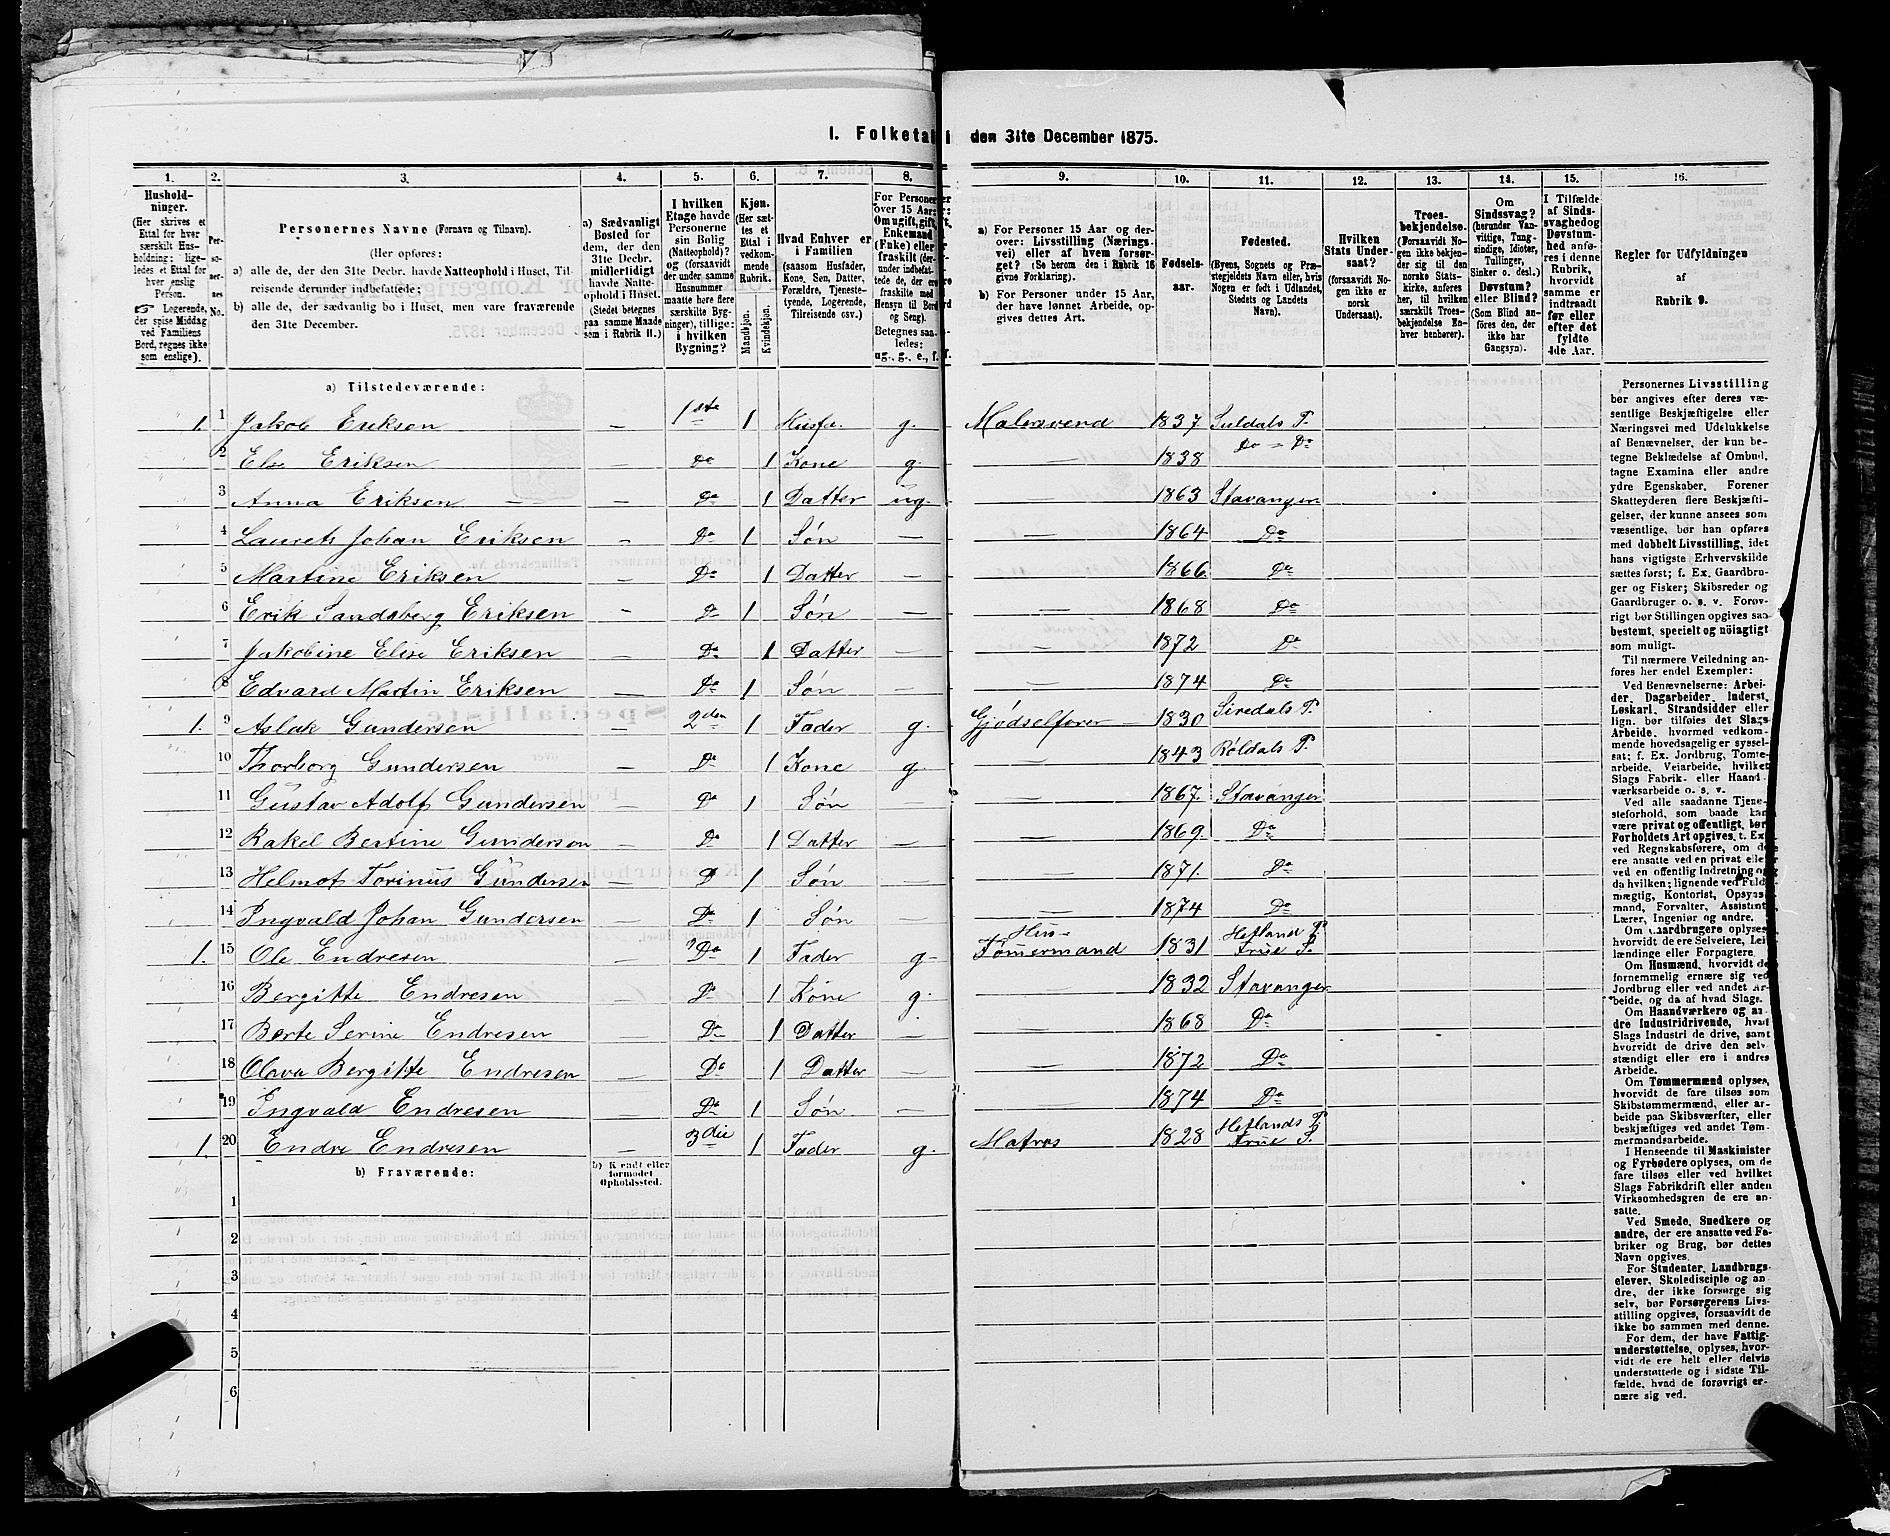 I. Folketal i den 31te December 1875.
1. 2. 3. 4. 5. 6. 7. 8. 9. 10. 11. 12. 13. 14. 15. 16.
Husholdninger. (Her skrives et Ettal for hver særskilt Husholdning; ligeledes et Ettal for hver enslig Person. Logerende, der spise Middag ved Familiens Bord, regnes ikke som enslige).
Personernes No.
Personernes Navne (Fornavn og Tilnavn).
(Her opføres:
a) alle de, der den 31te Decbr. havde Natteophold i Huset, Tilreisende derunder indbefattede;
b) alle de, der sædvanlig bo i Huset, men vare fraværende den 31te December.
a) Sædvanligt Bosted for dem, der den 31te Decbr. midlertidigt havde Natteophold i Huset. (Stedet betegnes paa samme Maade som i Rubrik 11.)
I hvilken Etage havde Personerne sin Bolig (Natteophold)? og (forsaavidt der under samme Husnummer maatte høre flere særskilte Bygninger), tillige: i hvilken Bygning?
Kjøn. (Her sættes et Ettal i vedkommende Rubrik.
Mandkjøn. Kvindekjøn.
Hvad Enhver er i Familien (saasom Husfader, Kone, Søn, Datter, Forældre, Tjenestetyende, Logerende, Tilreisende osv.)
For Personer over 15 Aar: Om ugift, gift, Enkemand (Enke) eller fraskilt (derunder indbefattede de, der ere fraskilte med Hensyn til Bord og Seng). Betegnes saaledes: ug., g., e., f.
a) For Personer 15 Aar og derover: Livsstilling (Næringsvei) eller af hvem forsørget? (Se herom den i Rubrik 16 givne Forklaring).
b) For Personer under 15 Aar, der have lønnet Arbeide, opgives dettes Art.
Fødselsaar.
Fødested. (Byens, Sognets og Præstegjeldets Navn eller, hvis Nogen er født i Udlandet, Stedets og Landets Navn).
Hvilken Stats Undersaat? (forsaavidt Nogen ikke er norsk Undersaat).
Troesbekjendelse. (Forsaavidt Nogen ikke bekjender sig til den norske Statskirke, anføres her, til hvilken særskilt Troesbekjendelse Enhver henhører).
Om Sindssvag? (herunder Vanvittige, Tungsindige, Idioter, Tullinger, Sinker o. desl.) Døvstum? eller Blind? (Som Blind anføres den, der ikke har Gangsyn).
I Tilfælde af Sindssvaghed og Døvstumhed anføres i denne Rubrik, hvorvidt samme er indtraadt før eller efter det fyldte 4de Aar.
Regler for Udfyldningen af Rubrik 9.
a) Tilstedeværende:
1. 1 Jakob Eriksen — 1ste 1 Husfa. g. Malersvend 1837. Suldals P.
2 Else Eriksen — Do 1 Kone g. — 1838 Do - Do
3 Anna Eriksen — Do 1 Datter ug. — 1863 Stavanger
4 Laurets Johan Eriksen — Do 1 Søn — — 1864 Do
5 Martine Eriksen — Do 1 Datter — — 1866 Do
6 Erik Sandsberg Eriksen — Do 1 Søn — — 1868 Do
7 Jakobine Elise Eriksen — Do 1 Datter — — 1872 Do
8 Edvard Martin Eriksen — Do 1 Søn — — 1874 Do
1. 9 Aslak Gundersen — 2den 1 Fader g. Gjødselfører 1830 Siredals P.
10 Thorborg Gundersen — Do 1 Kone g. — 1843 Røldals P.
11 Gustav Adolf Gundersen — Do 1 Søn — — 1867. Stavanger
12 Rakel Bertine Gundersen — Do 1 Datter — — 1869. Do
13 Helmof Torinus Gundersen — Do 1 Søn — — 1871. Do
14 Ingvald Johan Gundersen — Do 1 Søn — — 1874 Do
1. 15 Ole Endresen — Do 1 Fader g. Hus-Tømmermand 1831 Hetland P. Frue S.
16 Bergitte Endresen — Do 1 Kone g. — 1832 Stavanger
17 Berte Serine Endresen — Do 1 Datter — — 1868 Do
18 Olava Bergitte Endresen — Do 1 Datter — — 1872 Do
19 Engvald Endresen — Do 1 Søn — — 1874 Do
1. 20 Endre Endresen — 3die 1 Fader g. Matros 1828 Hetlands P. Frue S.
b) Fraværende:
b) Kjendt eller formodet Opholdssted.
1
2
3
4
5
6
Personernes Livsstilling
bør angives efter deres væsentlige Beskjæftigelse eller
Næringsvei med Udelukkelse
af Benævnelser, der kun betegne Beklædelse af Ombud,
tagne Examina eller andre
ydre Egenskaber. Forener
Skatteyderen flere Beskjæftigelser, der kunne ansees som
væsentlige, bør han opføres
med dobbelt Livsstilling, idet
hans vigtigste Erhvervskilde
sættes først; f. Ex. Gaardbruger og Fisker; Skibsreder og
Gaardbruger o. s. v. Forøvrigt bør Stillingen opgives saa
bestemt, specielt og nöiagtigt
som muligt.
Til nærmere Veiledning anføres her endel Exempler:
Ved Benævnelserne: Arbeider, Dagarbeider, Inderst,
Løskarl, Strandsidder eller
lign. bør tilføies det Slags
Arbeide, hvormed vedkommende hovedsagelig er sysselsat; f. Ex. Jordbrug, Tomtearbeide, Veiarbeide, hvilket
Slags Fabrik- eller Haandværksarbeide o. s. v.
Ved alle saadanne Tjenesteforhold, som baade kan
være privat og offentligt, bør
Forholdets Art opgives, t. Ex.
ved Regnskabsførere, om de
ere ansatte ved en privat eller
ved en offentlig Indretning og
da hvilken; lignende ved Fuldmægtig, Kontorist, Opsynsmand, Forvalter, Assistent,
Lærer, Ingeniør og andre.
Om Gaardbrugere oplyses,
hvorvidt de ere Selveiere, Leilændinge eller Forpagtere.
Om Husmænd, hvorvidt de
fornemmelig ernære sig ved
Jordbrug eller ved andet Arbeide, og da af hvad Slags.
Om Haandværkere og andre Industridrivende, hvad
Slags Industri de drive, samt
hvorvidt de drive den selvstændigt eller ere i andres
Arbeide.
Om Tømmermænd oplyses,
hvorvidt de fare tilsøs som
Skibstømmermænd, eller arbeide paa Skibsværfter, eller
beskjæftiges ved andet Tømmermandsarbeide.
I Henseende til Maskinister
og Fyrbødere oplyses, om de
fare tilsøs eller ved hvilket
Slags Fabrikdrift eller anden
Virksomhedsgren de ere ansatte.
Ved Smede, Snedkere og
andre, der ere ansatte ved Fabriker og Brug, bør dettes
Navn opgives.
For Studenter, Landbrugselever, Skoledisciple og andre, der ikke forsørge sig
selv, bør Forsørgerens Livsstilling opgives, forsaavidt de
ikke bo sammen med denne.
For dem, der have Fattigunderstøttelse, oplyses, hvorvidt de ere helt eller delvis
understøttede og i sidste Tilfælde, hvad de forøvrigt ernære sig ved.